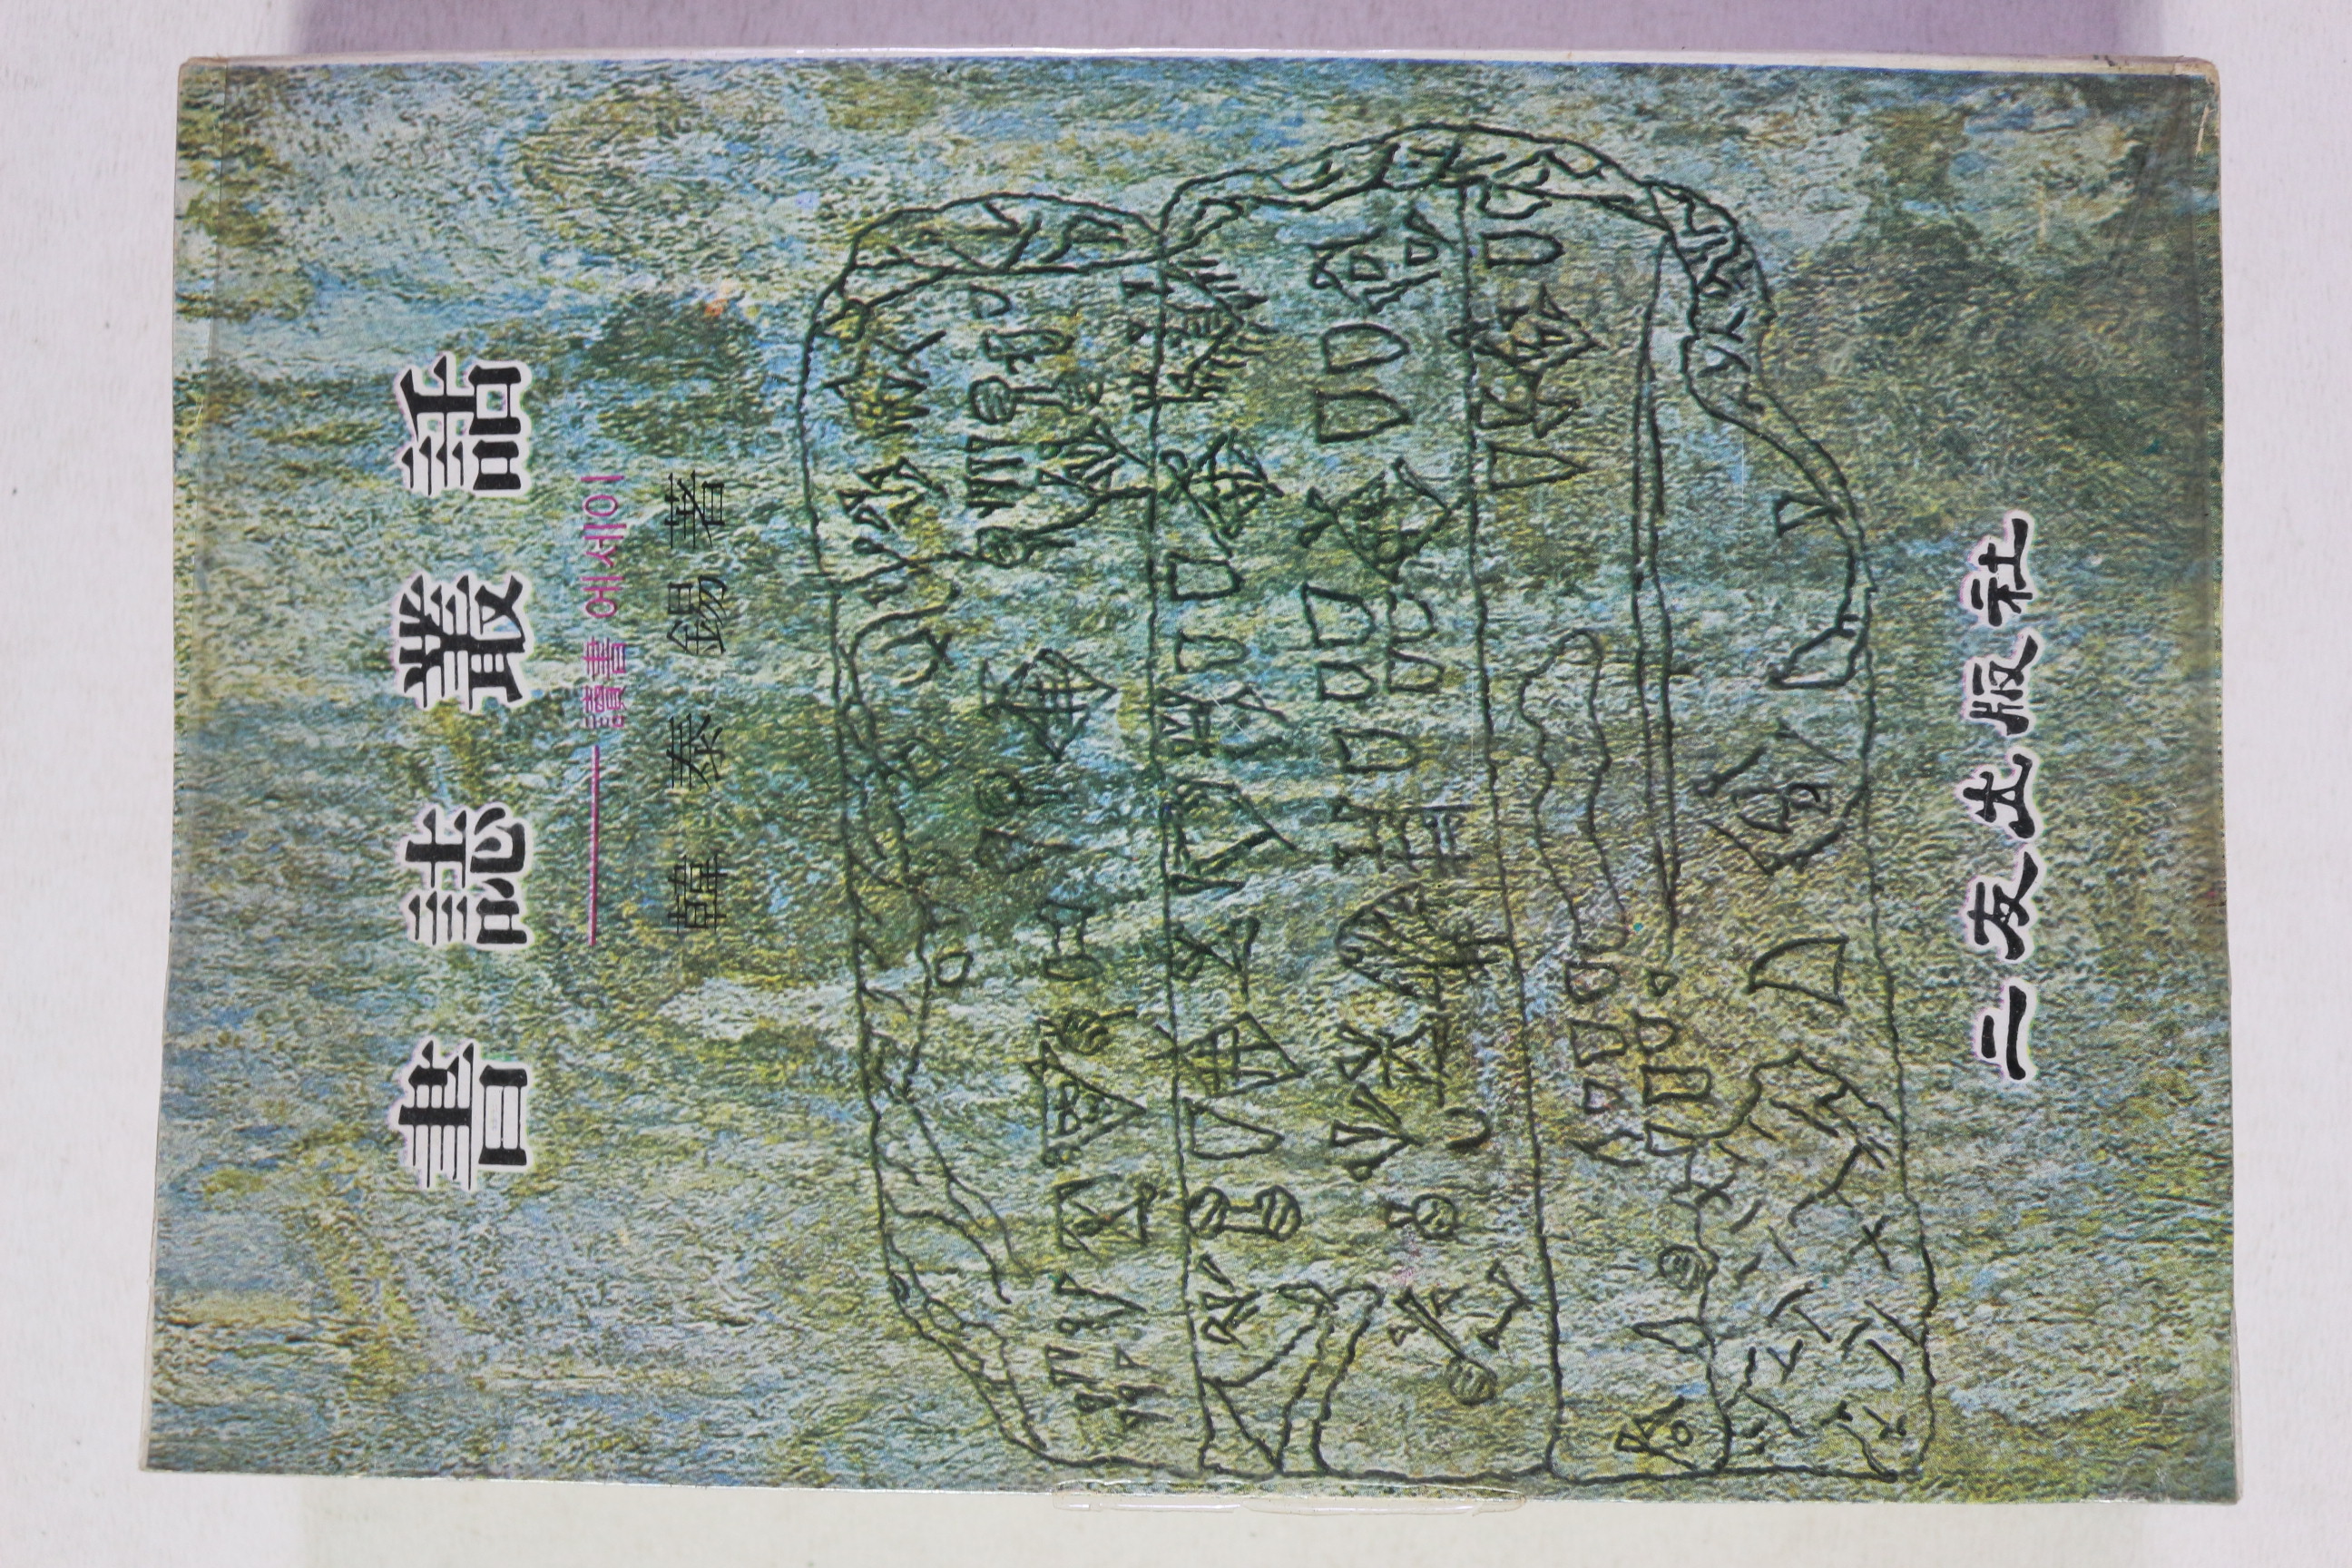 書誌叢話
——讀書에세이
韓泰錫 著
二友出版社